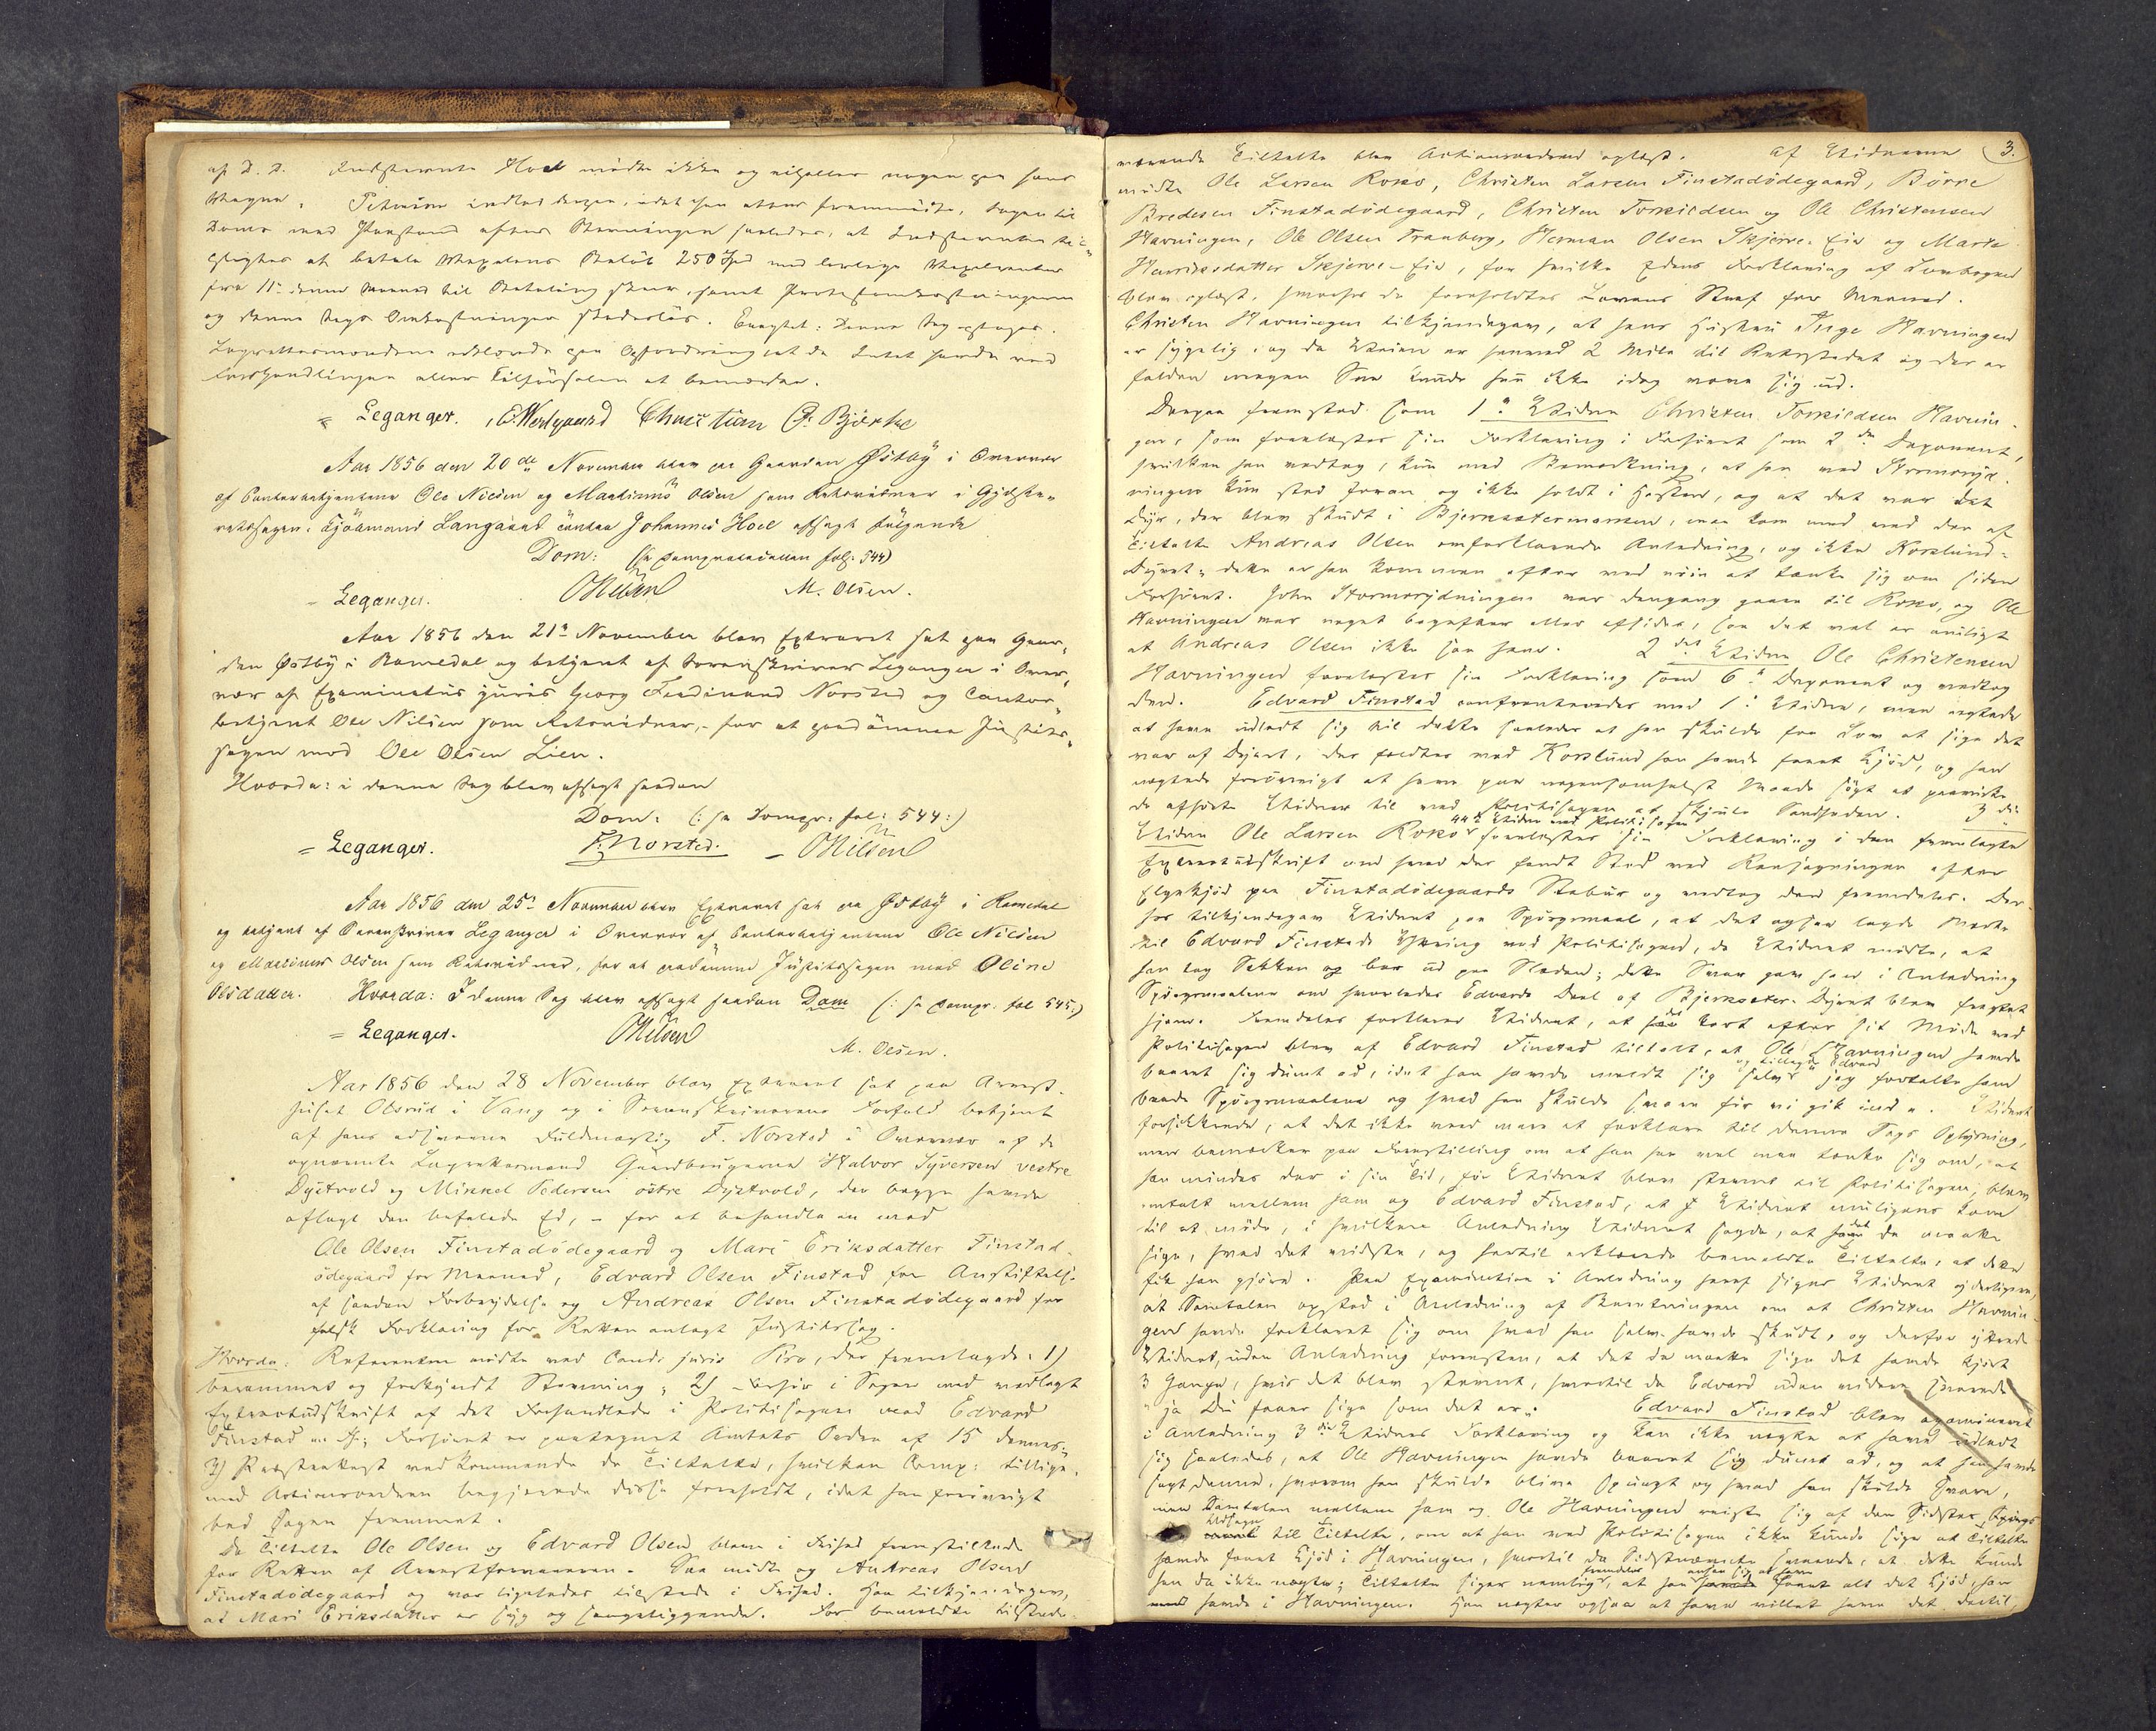 af D. D. Indstevnte Hoel mødte ikke og eiheller nogen paa hans
Vegne. Citanten indlod derpaa, idet han atter fremmødte, Sagen til
Doms med Paastand efter Stevningen saaledes, at Indstevnte til-
pligtes at betale Vexelens Beløb 250 Spd med lovlige Vexelrenter
fra 11te denne Maaned til Betaling skeer, samt Protestomkostningerne
og denne Sags Omkostninger skadesløs. Eragtet: Denne Sag optages.
Lagrettesmændene erklærede paa Opfordring at de Intet havde ved
Forhandlingen eller Tilførselen at bemærke.
= Leganger. Christian P. Bjørke
Aar 1856 den 20de November blev paa Gaarden Østby i Overvær
af Contorbetjentene Ole Nilsen og Martinus Olsen som Retsvidner i Gjæste-
retssagen: Kjøbmand Langaard contra Johannes Hoel afsagt følgende
Dom: (se Domsprotocollen fol: 544)
- Leganger. ONilsen M. Olsen.
Aar 1856 den 21de November blev Extraret sat paa Gaar-
den Østby i Romedal og betjent af Sorenskriver Leganger i Over-
vær af Examinatus juris Georg Ferdinand Norsted og Contor-
betjent Ole Nilsen som Retsvidner, - for at paadømme Justits-
sagen mod Ole Olsen Lien.
Hvorda: i denne Sag blev afsagt saadan
Dom: (: se Domspr: fol: 544:)
= Leganger. F. Norsted. - ONilsen
Aar 1856 den 25de November blev Extraret sat paa Østby i Romedal
og betjent af Sorenskriver Leganger i Overvær af Contorbetjentene Ole Nilsen
og Martinus Olsen som Retsvidner, for at paadømme Justitssagen mod Oline
Olsdatter. Hvorda: I denne Sag blev afsagt saadan Dom (: se Domspr. fol 545:)
= Leganger. ONilsen M. Olsen.
Aar 1856 den 28 November blev Extraret sat paa Arrest-
huset Olsrud i Vang og i Sorenskriverens Forfald betjent
af hans edsvorne Fuldmægtig F. Norsted i Overvær af de
opnævnte Lagrettesmænd Gaardbrugerne Halvor Syversen vestre
Dystvold og Mikkel Pedersen østre Dystvold, der begge havde
aflagt den befalede Ed, - for at behandle en mod
Ole Olsen Finstadødegaard og Mari Eriksdatter Finstad-
ødegaard for Meened, Edvard Olsen Finstad for Anstiftelse
af saadan Forbrydelse og Andreas Olsen Finstadødegaard for
falsk Forklaring for Retten anlagt Justitssag.
Hvorda: Referenten mødte ved Cand: juris Piro, der fremlagde: 1)
berammet og forkyndt Stevning; 2) Forhør i Sagen med vedlagt
Extractudskrift af det Forhandlede i Politisagen mod Edvard
Finstad m. Fl; Forhøret er paategnet Amtets Orden af 15 dennes;
3) Præsteattest vedkommende de Tiltalte, hvilken Comp: tillige-
med Actionsordren begjærede disse foreholdt, idet han forøvrigt
bad Sagen fremmet.
De Tiltalte Ole Olsen og Edvard Olsen blev i Frihed fremstillede
for Retten af Arrestforvareren. Saa mødte og Andreas Olsen
Finstadødegaard og var ligeledes tilstede i Frihed. Han tilkjendegav,
at Mari Eriksdatter er syg og sengeliggende. For bemeldte tilstede-
3.
værende Tiltalte blev Actionsordren oplæst. Af Vidnerne
mødte Ole Larsen Roko, Christen Larsen Finstadødegaard, Børre
Bredesen Finstadødegaard, Christen Torkildsen og Ole Christensen
Havningen, Ole Olsen Tranberg, Herman Olsen Skjerve-Eie og Marte
Henriksdatter Skjerve-Eie, for hvilke Edens Forklaring af Lovbogen
blev oplæst, hvorhos de foreholdtes Lovens Straf for Meened.
Christen Havningen tilkjendegav, at hans Hustru Inge Havningen
er sygelig, og da Veien er henved 2 Mile til Retsstedet og der er
falden megen Snee kunde hun ikke idag vove sig ud.
Derpaa fremstod som 1te Vidne Christen Torkildsen Havnin-
gen, som forelæstes sin Forklaring i Forhøret som 2den Deponent,
hvilken han vedtog, kun med Bemærkning, at han ved Stormoryd-
ningen kun stod foran og ikke holdt i Hesten, og at det var det
Dyr, der blev skudt i Bjerksætermarken, man kom med ved den af
Tiltalte Andreas Olsen omforklarede Anledning, og ikke Korslund-
Dyret; dette er han kommen efter ved nøie at tænke sig om siden
Forhøret. John Stormorydningen var dengang gaaen til Roko, og Ole
Havningen var noget bagefter eller afsides, saa det vel er muligt
at Andreas Olsen ikke saa ham. 2det Vidne Ole Christensen
Havningen forelæstes sin Forklaring som 6te Deponent og vedtog
den. Edvard Finstad confronteredes med 1te Vidne, men negtede
at have udladt sig til dette saaledes at han skulde faa Lov at sige det
var af Dyret, der fældtes ved Korslund han havde faaet Kjød, og han
negtede forøvrigt at have paa nogensomhelst Maade søgt at paavirke
de afhørte Vidner til ved Politisagen at skjule Sandheden. 3die
Vidne Ole Larsen Roko 44de Vidne ved Politisagen forelæstes sin Forklaring i den fremlagte
Extractudskrift om hvad der fandt Sted ved Ransagningen efter
Elgskjød paa Finstadødegaards Stabur og vedtog den fremdeles. Der-
hos tilkjendegav Vidnet paa Spørgsmaal, at det ogsaa lagde Mærke
til Edvard Finstads Yttring ved Politisagen, da Vidnet mødte, at
han tog Sækken og bar ud paa Slæden; dette Svar gav han i Anledning
Spørgsmaalene om hvorledes Edvards Deel af Bjerksæter-Dyret blev fragtet
hjem. Fremdeles forklarer Vidnet, at det kort efter sit Møde ved
Politisagen blev af Edvard Finstad tiltalt, at Ole Havningen havde
baaret sig dumt ad, idet han havde meldt sig selv og tillagde Edvard "jeg fortalte ham
baade Spørgsmaalene og hvad han skulde svare før vi gik ind". Vidnet
forsikkrede, at det ikke veed mere at forklare til denne Sags Oplysning,
men bemærker paa Forestilling om at han saa vel maa tænke sig om, at
han mindes der i sin Tid, før Vidnet blev stevnet til Politisagen, blev
omtalt mellem ham og Edvard Finstad, at Vidnet muligens kom
til at møde, i hvilken Anledning Vidnet sagde, at det da maatte
sige, hvad det vidste, og hertil erklærede bemeldte Tiltalte, at dette
fik han gjøre. Paa Examination i Anledning heraf siger Vidnet yderligere,
at Samtalen opstod i Anledning af Beretningen om at Christen Havnin-
gen havde forklaret sig om hvad han selv havde skudt, og derfor yttrede
Vidnet, uden Anledning forresten, at det da maatte sige det havde kjørt
3 Gange, hvis det blev stevnet, hvortil da Edvard uden videre svarede
"ja Du faaer sige som det er". Edvard Finstad blev examineret
i Anledning 3die Vidnes Forklaring og kan ikke negte at have udladt
sig saaledes, at Ole Havningen havde baaret sig dumt ad, og at han havde
sagt denne, hvorom han skulde blive spurgt og hvad han skulde svare,
men Samtalen mellem ham og Ole Havningen reiste sig af den Sidstes
Udsagn til Tiltalte, om at han ved Politisagen ikke kunde sige at Tiltalte
havde faaet Kjød i Havningen, hvortil da Sidstnævnte svarede, at dette kunde
han da ikke negte; Tiltalte siger nemlig fremdeles, at han faaet alt det Kjød, han
havde i Havningen. Han negter ogsaa at have villet have det dertil